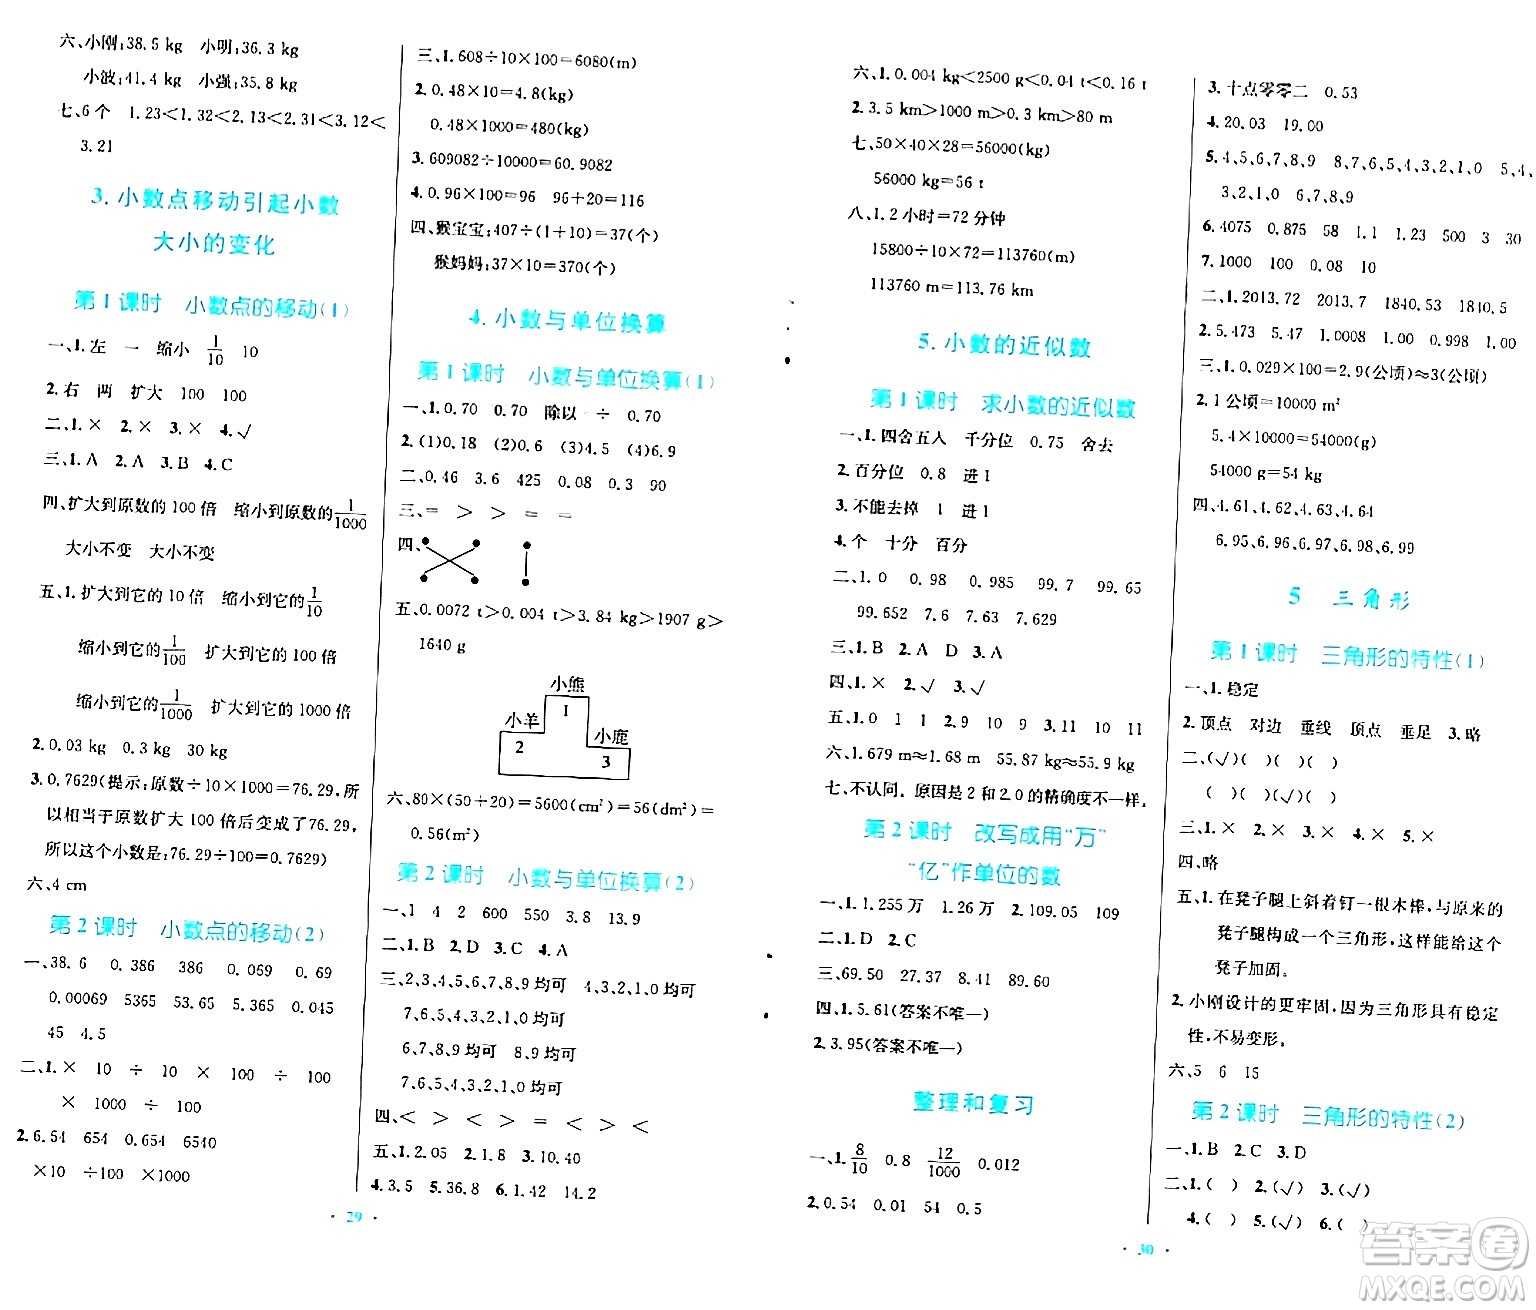 六、小刚:38.5 kg　小明:36.3 kg
小波:41.4 kg　小强:35.8 kg
七、6个　1.23<1.32<2.13<2.31<3.12<
3.21
3.小数点移动引起小数
大小的变化
第1课时　小数点的移动(1)
一、1.左　一　缩小　1/10　10
2.右　两　扩大　100　100
二、1.×　2.×　3.×　4.√
三、1.A　2.A　3.B　4.C
四、扩大到原数的100倍　缩小到原数的1/1000
大小不变　大小不变
五、1.扩大到它的10倍　缩小到它的1/10
缩小到它的1/100　扩大到它的100倍
缩小到它的1/1000　扩大到它的1000倍
2.0.03 kg　0.3 kg　30 kg
3.0.7629(提示:原数÷10×1000=76.29,所
以相当于原数扩大100倍后变成了76.29,
所以这个小数是:76.29÷100=0.7629)
六、4 cm
第2课时　小数点的移动(2)
一、38.6　0.386　386　0.069　0.69
0.00069　5365　53.65　5.365　0.045
45　4.5
二、1.×　10　÷　10　×　100　÷　100
×　1000　÷　100
2.6.54　654　0.654　6540
×10　÷100　×1000
三、1.608÷10×100=6080(m)
2.0.48×10=4.8(kg)
0.48×1000=480(kg)
3.609082÷10000=60.9082
4.0.96×100=96　96+20=116
四、猴宝宝:407÷(1+10)=37(个)
猴妈妈:37×10=370(个)
4.小数与单位换算
第1课时　小数与单位换算(1)
一、1.0.70　0.70　除以　÷　0.70
2.(1)0.18　(2)0.6　(3)4.5　(4)6.9
二、0.46　3.6　425　0.08　0.3　90
三、=　>　>　=　=
四、
五、0.0072 t>0.004 t>3.84 kg>1907 g>
1640 g
小熊
小羊　1
2　小鹿
3
六、80×(50+20)=5600(cm²)=56(dm²)=
0.56(m²)
第2课时　小数与单位换算(2)
一、1　4　2　600　550　3.8　13.9
二、1.B　2.D　3.C　4.A
三、2,3,4,5,6,7,8,9均可　4,3,2,1,0均可
7,6,5,4,3,2,1,0均可
6,7,8,9均可　8,9均可
7,6,5,4,3,2,1,0均可
四、<　>　<　>　=　<　>　>　<
五、1.2.05　2.1.8　3.10.40
4.3.5　5.36.8　6.1.42　14.2
· 29 ·
六、1.0.004 kg<2500 g<0.04 t<0.16 t
2.3.5 km>1000 m>0.3 km>80 m
七、50×40×28=56000(kg)
56000 kg=56 t
八、1.2小时=72分钟
15800÷10×72=113760(m)
113760 m=113.76 km
5.小数的近似数
第1课时　求小数的近似数
一、1.四舍五入　千分位　0.75　舍去
2.百分位　0.8　进1
3.不能去掉　1　进1
4.个　十分　百分
二、1.0　0.98　0.985　99.7　99.65
99.652　7.6　7.63　7.629
三、1.B　2.A　D　3.A
四、1.×　2.√　3.√
五、1.0　1　1　2.9　10　9　3.11　10　11
六、1.679 m≈1.68 m　55.87 kg≈55.9 kg
七、不认同。原因是2和2.0的精确度不一样。
第2课时　改写成用“万”
“亿”作单位的数
一、1.1.255万　1.26万　2.109.05　109
二、1.D　2.C
三、69.50　27.37　8.41　89.60
四、1.5.61(答案不唯一)
2.3.95(答案不唯一)
整理和复习
一、1.8/10　0.8　12/1000　0.012
2.0.54　0.01　54　0.5
3.十点零零二　0.53
4.20.03　19.00
5.4,5,6,7,8,9　8,7,6,5,4,3,2,1,0　5,4,
3,2,1,0　6,7,8,9
6.4075　0.875　58　1.1　1.23　500　3　30
7.1000　100　0.08　10
二、1.2013.72　2013.7　1840.53　1840.5
2.5.473　5.47　1.0008　1.00　9.998　1.00
三、1.0.029×100=2.9(公顷)≈3(公顷)
2.1公顷=10000 m²
5.4×10000=54000(g)
54000 g=54 kg
四、4.61,4.62,4.63,4.64
6.95,6.96,6.97,6.98,6.99
5　三角形
第1课时　三角形的特性(1)
一、1.稳定
2.顶点　对边　垂线　顶点　垂足　3.略
二、(√)(　)(　)(　)
(　)(　)(√)(　)
三、1.×　2.×　3.×　4.×　5.×
四、略
五、1.在凳子腿上斜着钉一根木棒,与原来的
凳子腿构成一个三角形,这样能给这个
凳子加固。
2.小刚设计的更牢固,因为三角形具有稳定
性,不易变形。
六、5　6　15
第2课时　三角形的特性(2)
一、1.B　2.C　3.D
二、1.(　)　2.(√)　3.(√)
4.(　)　5.(√)　6.(　)
· 30 ·
答案圈
MXQE.COM